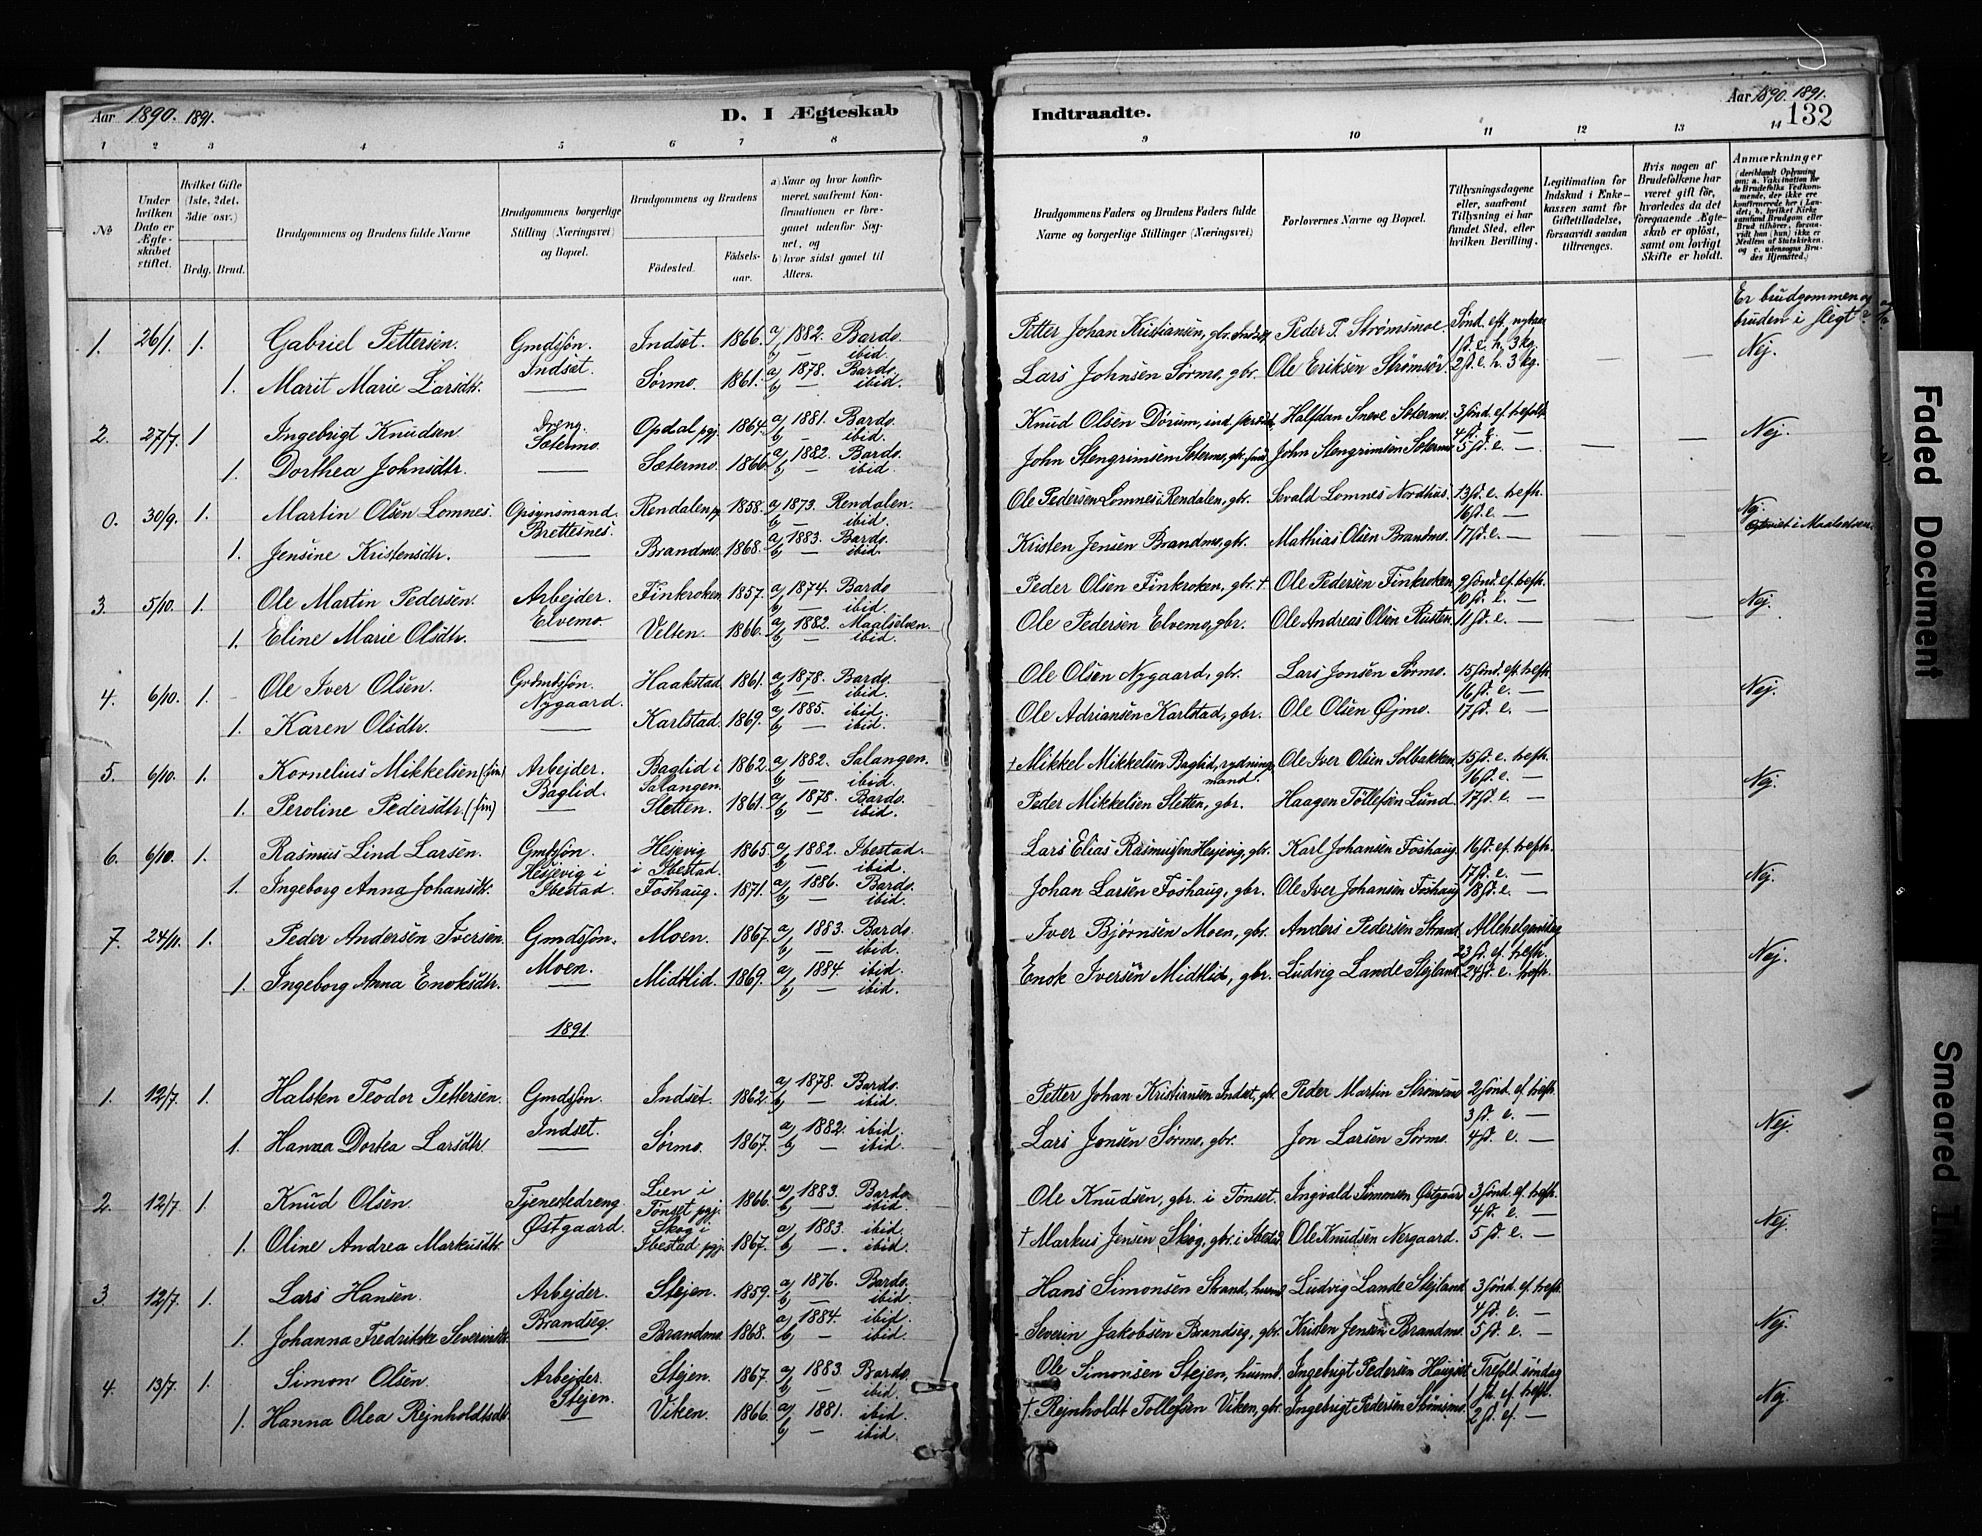 Aar 1890. 1891.
D. I Ægteskab
Indtraadte.
Aar 1890. 1891.
132
1 2 3 4 5 6 7 8
9 10 11 12 13 14
No
Under hvilken Dato er Ægteskabet stiftet.
Hvilket Gifte (1ste, 2det, 3die osv.)
Brdg. Brud.
Brudgommens og Brudens fulde Navne
Brudgommens borgerlige Stilling (Næringsvei) og Bopæl.
Brudgommens og Brudens
Födested. Födselsaar.
a) Naar og hvor konfirmeret, saafremt Konfirmationen er foregaaet udenfor Sognet, og
b) hvor sidst gaaet til Alters.
Brudgommens Faders og Brudens Faders fulde Navne og borgerlige Stillinger (Næringsvei)
Forlovernes Navne og Bopæl.
Tillysningsdagene eller, saafremt Tillysning ei har fundet Sted, efter hvilken Bevilling.
Legitimation for Indskud i Enkekassen samt for Giftetilladelse, forsaavidt saadan tiltrænges.
Hvis nogen af Brudefolkene har været gift för, hvorledes da det foregaaende Ægteskab er oplöst, samt om lovligt Skifte er holdt.
Anmærkninger
(deriblandt Oplysning om: a. Vaksination for de Brudefolks Vedkommende, der ikke ere konfirmerede her i Landet; b. hvilket Kirkesamfund Brudgom eller Brud tilhörer, forsaavidt han (hun) ikke er Medlem af Statskirken, og c. udensogns Brudes Hjemsted.)
Er brudgommen og bruden i slegt?
1. 26/1. 1. Gabriel Pettersen. Gmdssøn. Indset. 1866. a) 1882. Bardo. Petter Johan Kristiansen, gbr. Indset Peder P. Strømsmoe. Sönd. eft. nytaar
Indset. b) — ibid. 1 s. e. h. 3 kg. Nej.
1. Marit Marie Larsdtr. — Sørmo. 1861. a) 1878. Bardo. Lars Johnsen Sørmo, gbr. Ole Eriksen Strømsør. 2 s. e. h. 3 kg. — —
b) — ibid.
2. 27/7. 1 Ingebrigt Knudsen. Dreng. Opdal pgj. 1864. a) 1881. Bardo. Knud Olsen Dørum, ind. Halfdan Sneve Sætermo. 3 sönd. ef. trefolt.
Sætermo. b) — ibid. 4 s. e. — Nej.
1. Dorthea Johnsdtr. — Sætermo. 1866. a) 1882. Bardo. John Stengrimsen Sætermo, gbr. John Stengrimsen Sætermo 5 s. e. — — —
b) — ibid.
0. 30/9. 1. Martin Olsen Lomnes. Opsynsmand. Rendalen pgj. 1858. a) 1873. Rendalen. Ole Pedersen Lomnes i Rendalen, gbr. Sevald Lomnes Nordhus. 13 s. e. trefh.
Brettesnes. b) — ibid. 16 s. e. — Nej. i Maalselven.
1. Jensine Kristensdtr. — Brandmo. 1868. a) 1883. Bardo. Kristen Jensen Brandmo, gbr. Mathias Olsen Brandmo. 17 s. e. — — —
b) — ibid.
3. 5/10. 1. Ole Martin Pedersen. Arbejder. Finkroken. 1857. a) 1874. Bardo Peder Olsen Finkroken, gbr. † Ole Pedersen Finkroken. 9 sönd. ef. trefh.
Elvemo b) — ibid. 10 s. e. — Nej.
1. Eline Marie Olsdtr. Velten. 1866. a) 1882. Maalselven. Ole Pedersen Elvemo, gbr. Ole Andreas Olsen Rusten. 11 s. e. — — —
b) — ibid.
4. 6/10. 1. Ole Iver Olsen. Grdmdssøn. Haakstad. 1861. a) 1878. Bardo. Ole Olsen Nygaard, gbr. Lars Jonsen Sørmo. 15 sönd. eft. trefh.
Nygaard. b) — ibid. 16 s. e. — Nej.
1. Karen Olsdtr. — Karlstad. 1869. a) 1885. ibid. Ole Adriansen Karlstad, gbr. Ole Olsen Øjmo. 17 s. e. —
b) — ibid.
5. 6/10. 1. Kornelius Mikkelsen (fin) Arbejder. Baglid i 1862. a) 1882. Salangen. † Mikkel Mikkelsen Baglid, rydningsmand. Ole Iver Olsen Solbakken. 15 s. e. trefh.
Baglid. Salangen. b) — ibid. 16 s. e. — Nej.
1. Peroline Pedersdtr. (fin) — Sletten. 1861. a) 1878. Bardo. Peder Mikkelsen Sletten, gbr. Haagen Tollefsen Lund. 17 s. e. —
b) — ibid.
6. 6/10. 1. Rasmus Lind Larsen. Gmdssøn. Hesjevig 1865. a) 1882. Ibestad. Lars Elias Rasmussen Hesjevig, gbr. Karl Johansen Foshaug. 16 s. ef. trefh.
Hesjevig i i Ibestad. b) — ibid. 17 s. e. — Nej.
1. Ingeborg Anna Johansdtr. Ibestad. Foshaug. 1871. a) 1886. Bardo. Johan Larsen Foshaug, gbr. Ole Iver Johansen Foshaug 18 s. e. —
b) — ibid.
7. 24/11. 1. Peder Andersen Iversen. Gmdssøn. Moen. 1867. a) 1883. Bardo. Iver Bjørnsen Moen, gbr. Anders Pedersen Strand. Allehelgensdag
Moen. b) — ibid. 23 s. ef. trefh. Nej.
1. Ingeborg Anna Enoksdtr. — Midtlid. 1869. a) 1884. ibid. Enok Iversen Midtlid, gbr. Ludvig Lande Stejland. 24 s. e. trefh.
b) — ibid.
1891.
1. 12/7. 1. Halsten Teodor Pettersen. Gmdssøn. Indset. 1862. a) 1878. Bardo. Petter Johan Kristiansen Indset, gbr. Peder Martin Strømsmo 2 sönd. ef. trefh.
b) — ibid. 3 s. e. —
1. Hanna Dortea Larsdtr. Indset. Sørmo. 1867. a) 1882. ibid. Lars Jonsen Sørmo, gbr. Jon Larsen Sørmo. 4 s. e. — Nej.
b) — ibid.
2. 12/7. 1. Knud Olsen. Tjenestedreng. Lien i 1866. a) 1883. Bardo Ole Knudsen, gbr. i Tønset. Ingvald Simonsen Østgaard 3 sönd. ef. trefh.
Østgaard. Tønset pgj. b) — ibid. 4 s. e. — Nej.
1. Oline Andrea Markusdtr. Skog i Ibestad pgj. 1867. a) 1883. ibid. † Markus Jensen Skog, gbr. i Ibestad. Ole Knudsen Nergaard. 5 s. e. —
b) — . ibid.
3 12/7. 1. Lars Hansen. Arbejder. Stejen. 1859. a) 1876. Bardo. Hans Simonsen Strand, husmd Ludvig Lande Stejland. 3 sönd. ef. trefh.
Brandseg. b) — ibid. 4 s. e. —
1. Johanna Fredrikke Severinsdtr. — Brandmo. 1868. a) 1884. ibid. Severin Jakobsen Brandseg, gbr. Kristen Jensen Brandmo. 5 s. e. — Nej.
b) — ibid.
4. 13/7. 1. Simon Olsen. Arbejder. Stejen. 1867. a) 1883. Bardo. Ole Simonsen Stejen, husmd. Ingebrigt Pedersen Trefold. söndag
Stejen. b) — ibid. 1 s. ef. trefh. Nej.
1. Hanna Olea Rejnholdtsdtr. — Viken. 1866. a) 1881. ibid. † Rejnholdt Tollefsen Viken, gbr. Ingebrigt Pedersen Strømsmo. 2 s. ef. —
b) — ibid.
Faded Document
Smeared Ink